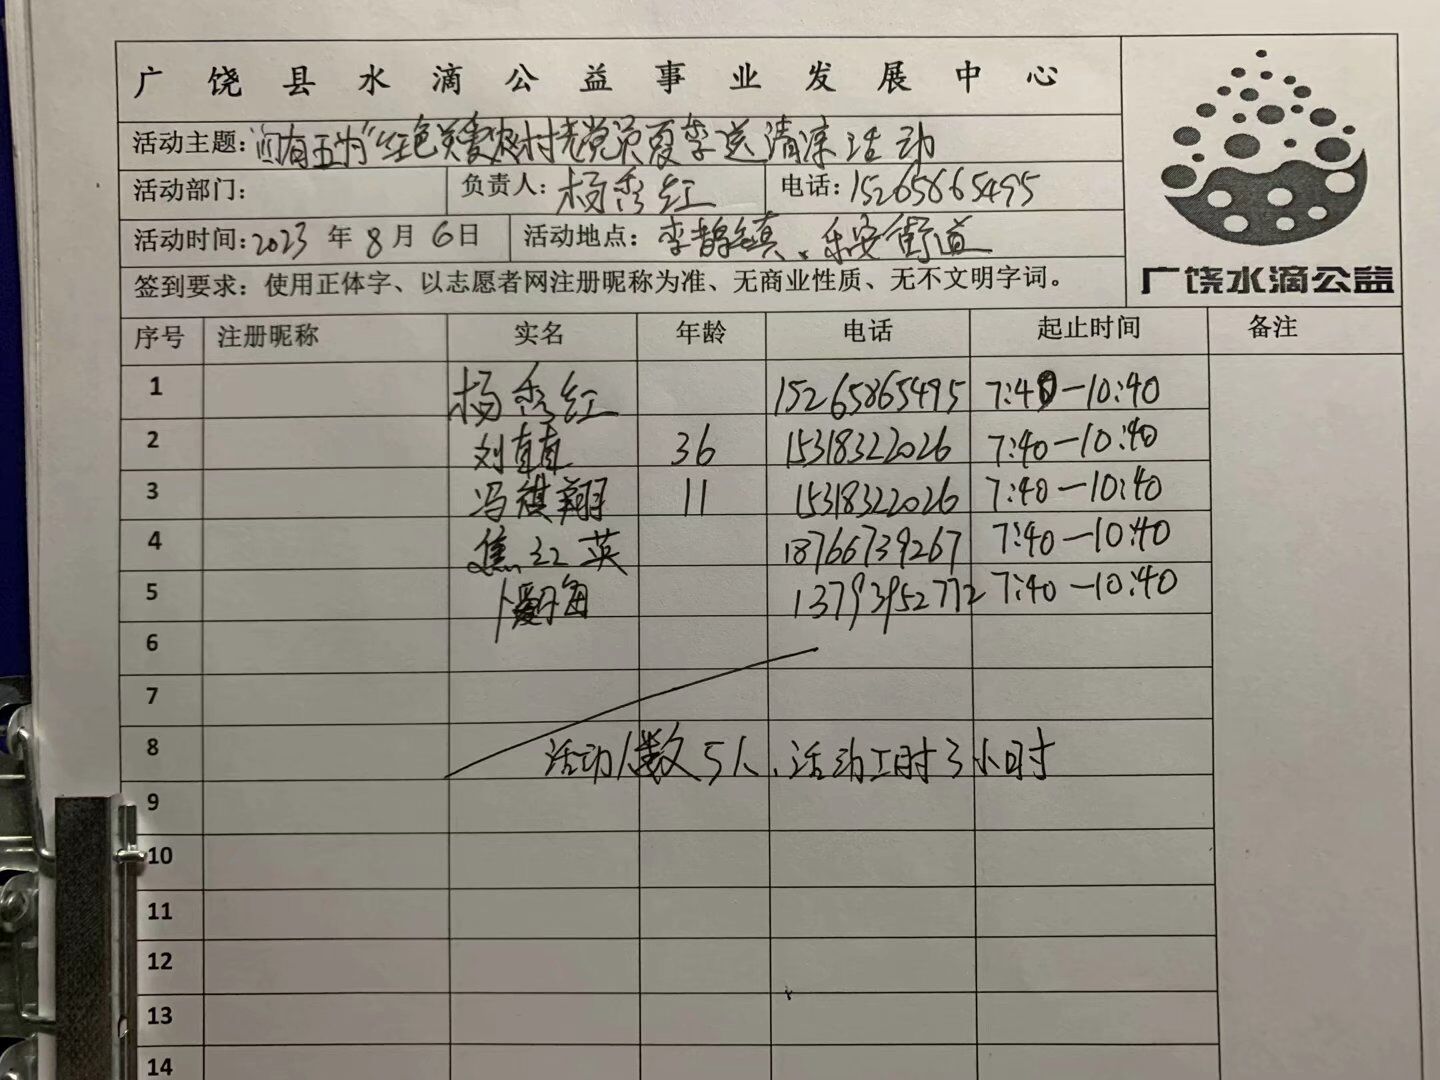 广饶县水滴公益事业发展中心
活动主题:"红色关爱农村老党员夏季送清凉活动
活动部门: 负责人:杨秀红 电话:15265865495
活动时间:2023年8月6日 活动地点:李鹊镇、乐安街道
签到要求:使用正体字、以志愿者网注册昵称为准、无商业性质、无不文明字词。
广饶水滴公益
序号 注册昵称 实名 年龄 电话 起止时间 备注
1 杨秀红 15265865495 7:40—10:40
2 刘真真 36 15318322026 7:40—10:40
3 冯祺翔 11 15318322026 7:40—10:40
4 焦红英 18766739267 7:40—10:40
5 13793952772 7:40—10:40
6
7
8 活动人数5人、活动工时3小时
9
10
11
12
13
14